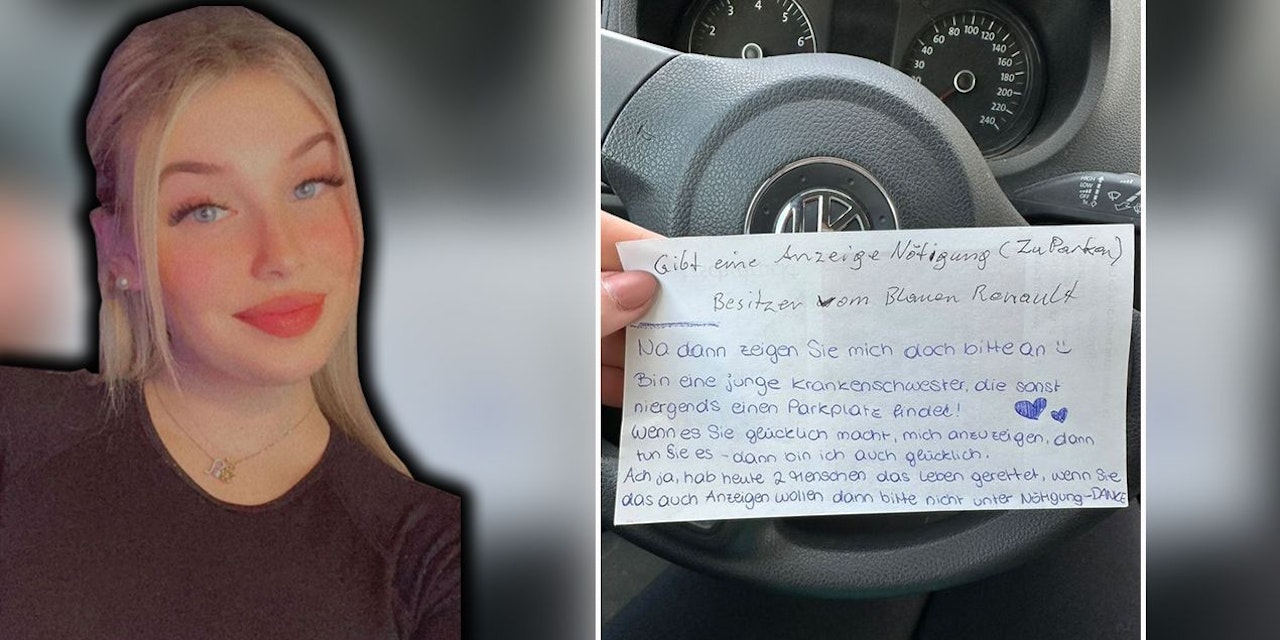 2 3 4 5 6
30 40 60 80 100 120 140 160 180 200 220 240
HIGH
LOW
OFF
Gibt eine Anzeige Nötigung (ZuParken)
Besitzer vom Blauen Renault
Na dann zeigen Sie mich doch bitte an
Bin eine junge Krankenschwester, die sonst
niergends einen Parkplatz findet!
Wenn es Sie glücklich macht, mich anzuzeigen, dann
tun Sie es - dann bin ich auch glücklich.
Ach ja, hab heute 2 Menschen das Leben gerettet, wenn Sie
das auch Anzeigen wollen dann bitte nicht unter Nötigung-DANKE